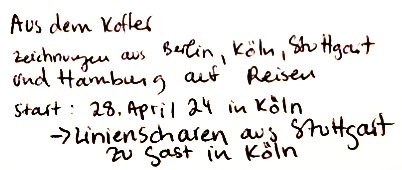 Aus dem Koffer
Zeichnungen aus Berlin, Köln, Stuttgart
und Hamburg auf Reisen
Start: 28. April 24 in Köln
→ Linienscharen aus Stuttgart
zu Gast in Köln